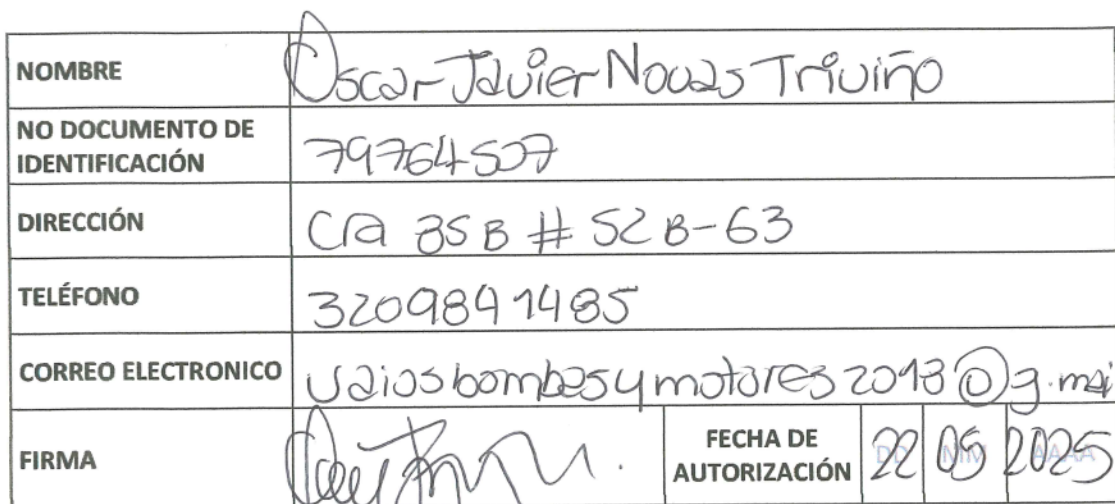 NOMBRE Oscar Javier Novas Triviño
NO DOCUMENTO DE
IDENTIFICACIÓN 79764507
DIRECCIÓN Cra 35B # 52B-63
TELÉFONO 3209841485
CORREO ELECTRONICO @g.mai
FIRMA FECHA DE
AUTORIZACIÓN 22 05 2025
DD MM AAAA